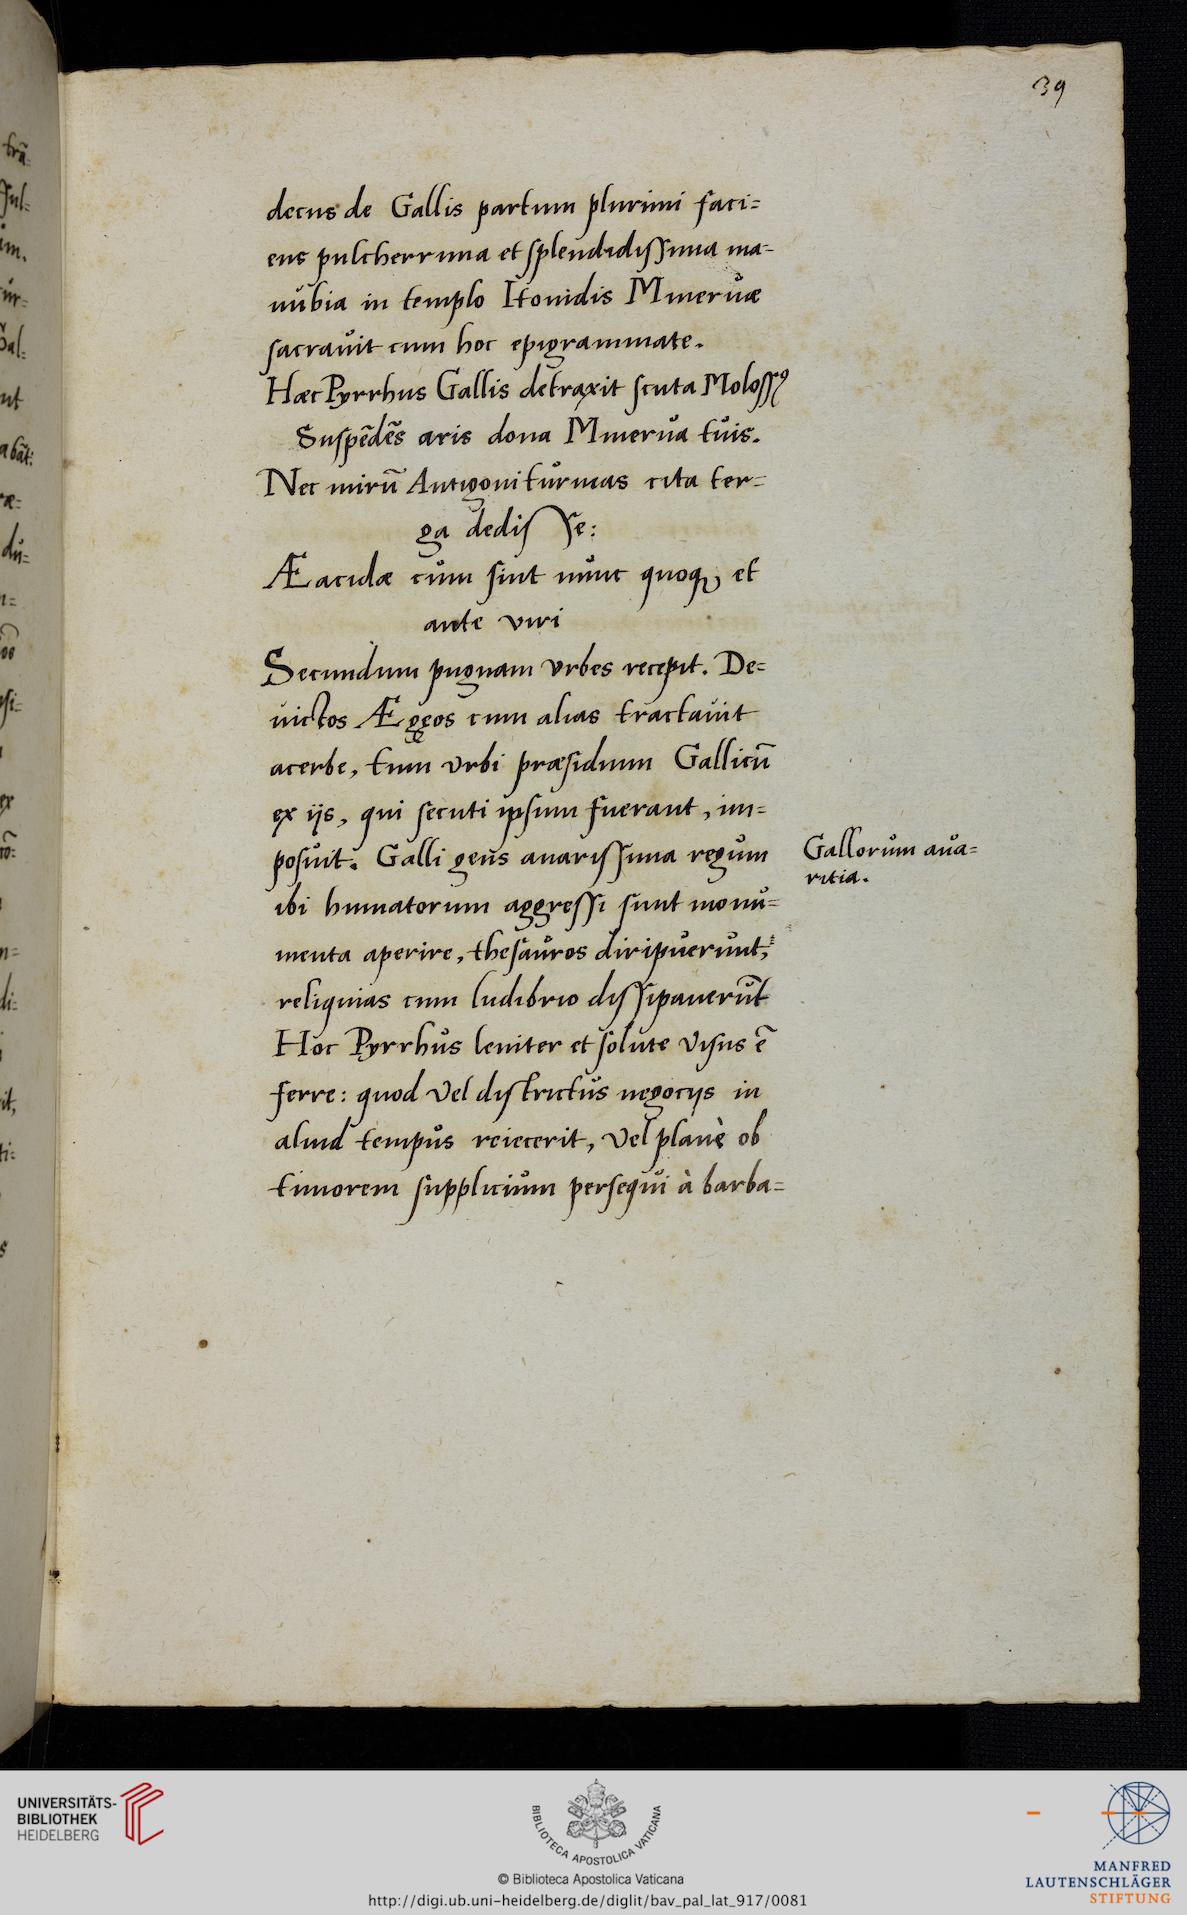 39
decus de Gallis partum plurimi faci=
ens pulcherrima et splendidissima ma-
nubia in templo Itonidis Mineruæ
sacrauit cum hoc epigrammate.
Hæc Pyrrhus Gallis detraxit scuta Moloss⁹
Suspēdēs aris dona Minerua tuis.
Nec mirū Antigoni turmas cita ter=
ga dedisse:
Æacidæ cum sint nunc quoq, et
ante viri
Secundum pugnam vrbes recepit. De=
uictos Ægęos cum alias tractauit
acerbe, tum vrbi præsidium Gallicū
ex ijs, qui secuti ipsum fuerant, im=
posuit. Galli gens auarissima regum
ibi humatorum aggressi sunt monu=
menta aperire, thesauros diripuerunt,
reliquias cum ludibrio dissipauerūt
Hoc Pyrrhus leniter et solute visus ē
ferre: quod vel districtus negocijs in
aliud tempus reiecerit, vel planè ob
timorem supplicium persequi à barba=
Gallorum aua=
ritia.
UNIVERSITÄTS-
BIBLIOTHEK
HEIDELBERG
BIBLIOTECA APOSTOLICA VATICANA
© Biblioteca Apostolica Vaticana
http://digi.ub.uni-heidelberg.de/diglit/bav_pal_lat_917/0081
MANFRED
LAUTENSCHLÄGER
STIFTUNG